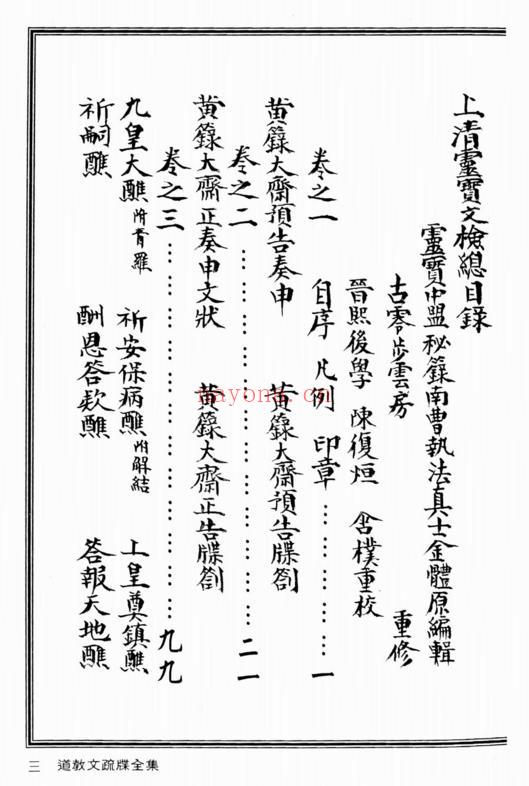 上清靈寶文檢總目錄
靈寶中盟秘籙南曹執法真士金體原編輯
古零步雲房 重修
晉熙後學 陳復烜 含樸重校
卷之一 自序 凡例 印章………………一
黃籙大齋預告奏申 黃籙大齋預告牒劄
卷之二………………二一
黃籙大齋正奏申文狀 黃籙大齋正告牒劄
卷之三………………九九
九皇大醮附青羅 祈安保病醮附解結 上皇奠鎮醮
祈嗣醮 酬恩答欵醮 答報天地醮
nayona.cn
三 道教文疏牒全集